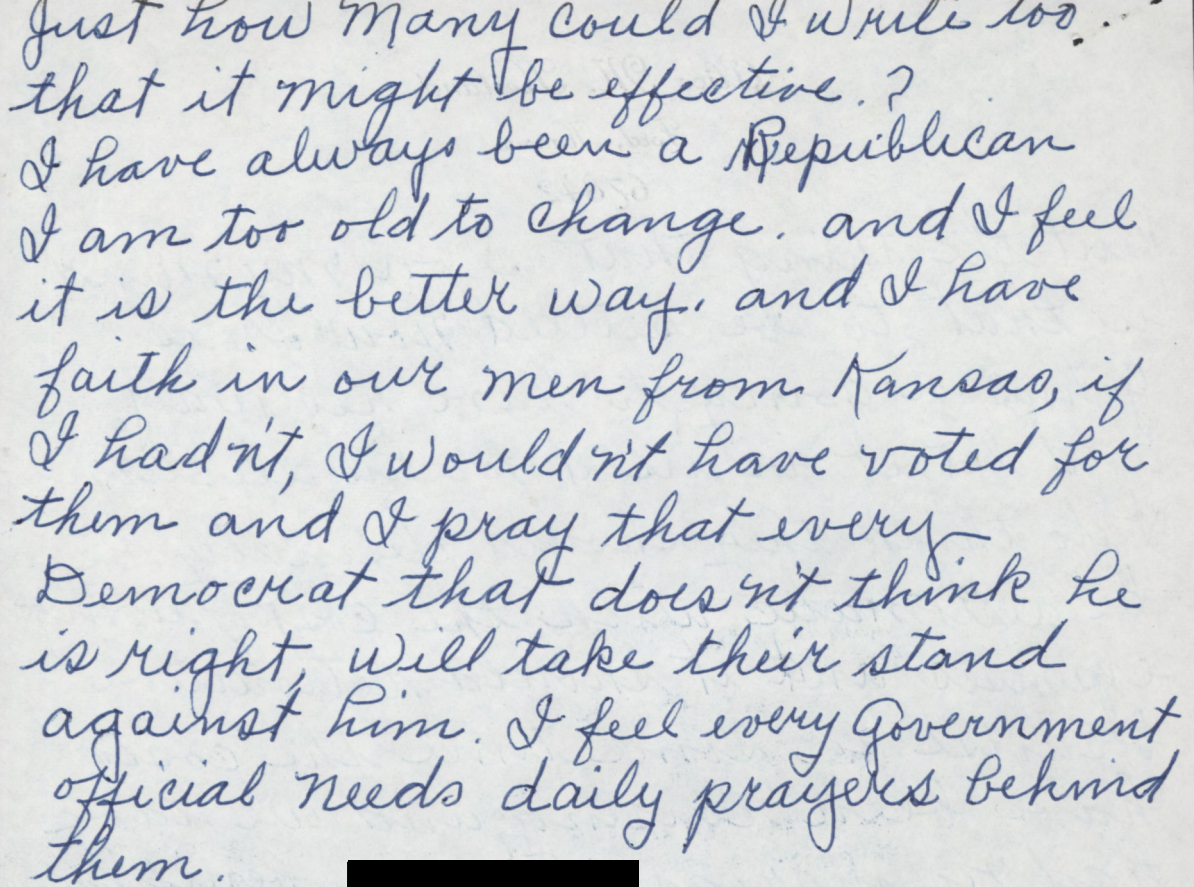 Just how Many could I write too
that it might be effective.?
I have always been a Republican
I am too old to change. and I feel
it is the better way. and I have
faith in our men from Kansas, if
I hadn't, I wouldn't have voted for
them and I pray that every
Democrat that does'n't think he
is right, will take their stand
against him. I feel every Government
official needs daily prayers behind
them.